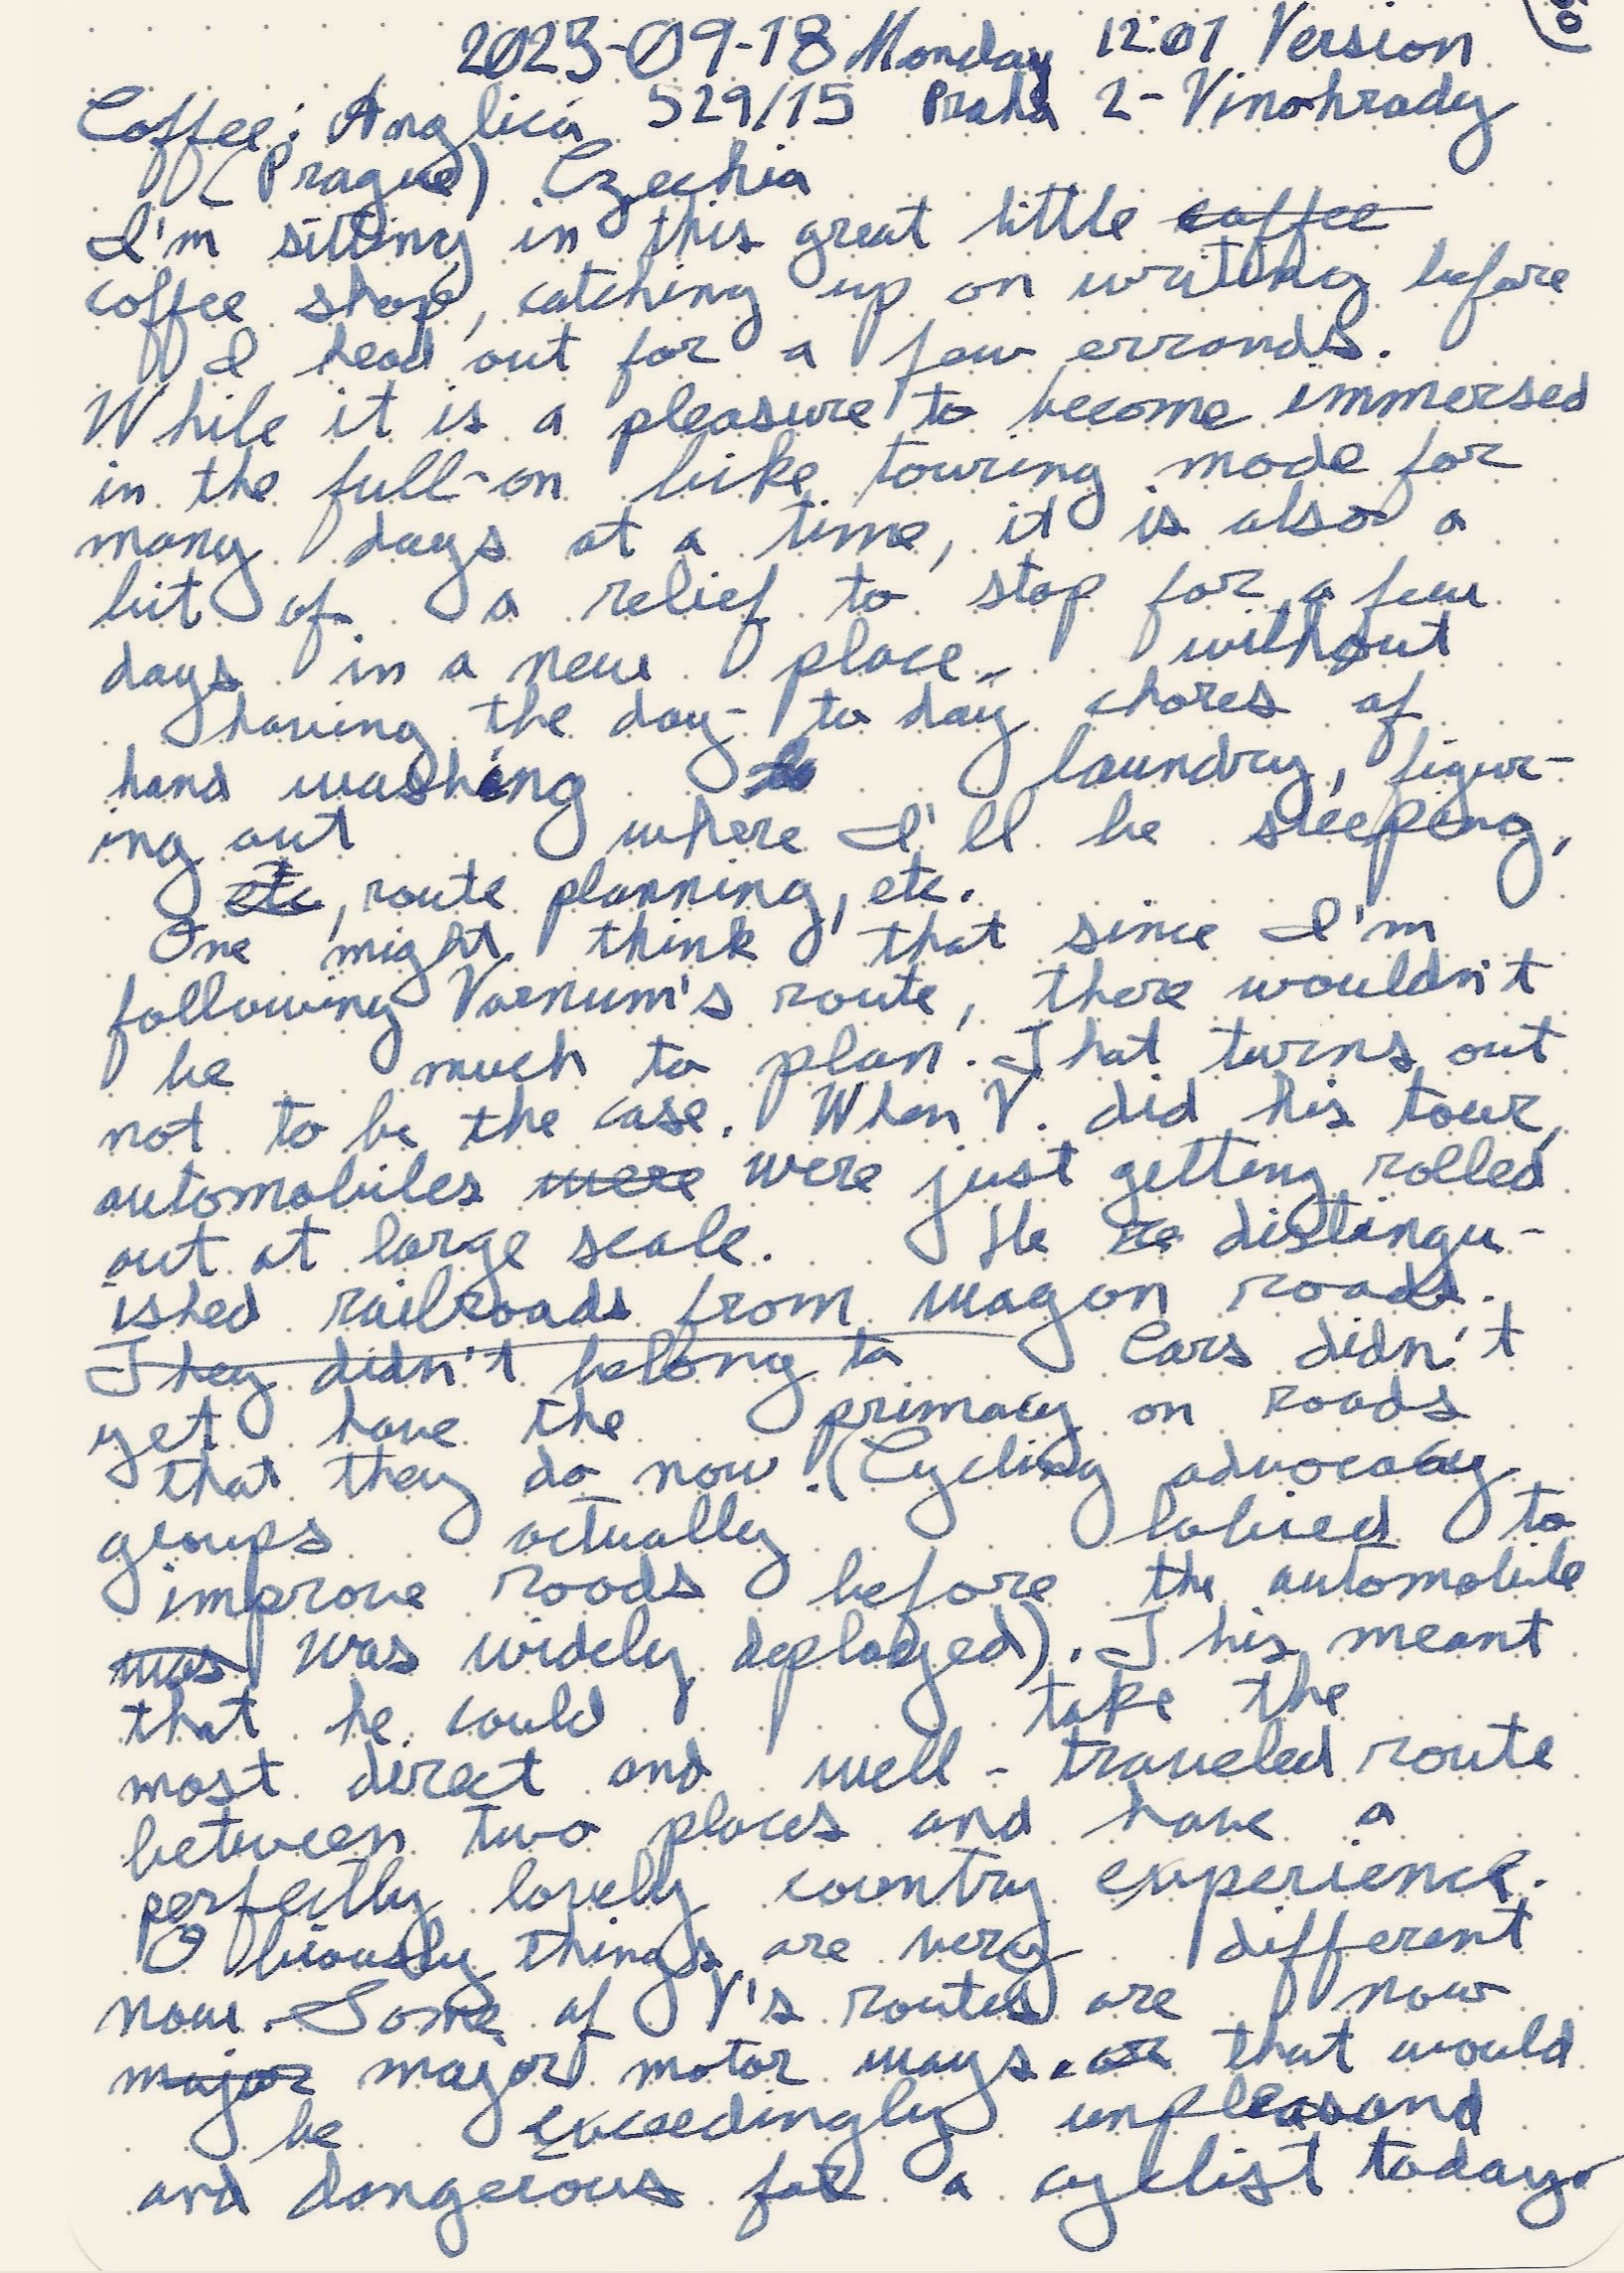 2023-09-18 Monday 12:01 Version
Coffee: Anglická 529/15 Praha 2-Vinohrady
(Prague) Czechia
I'm sitting in this great little coffee
coffee shop, catching up on writing before
I head out for a few errands.
While it is a pleasure to become immersed
in the full-on bike touring mode for
many days at a time, it is also a
bit of a relief to stop for a few
days in a new place, without
having the day-to day chores of
hand washing to laundry, figur-
ing out where I'll be sleeping,
etc, route planning, etc.
One might think that since I'm
following Varnum's route, there wouldn't
be much to plan. That turns out
not to be the case. When V. did his tour,
automobiles were were just getting rolled
out at large scale. He re distingu-
ished railroads from wagon roads.
They didn't belong to Cars didn't
yet have the primacy on roads
that they do now. (Cycling advocacy
groups actually lobied to
improve roads before the automobile
was was widely deployed). This meant
that he could take the
most direct and well-traveled route
between two places and have a
perfectly lovely country experience.
Obviously things are very different
now. Some of V's routes are now
major major motor ways. that would
be exceedingly unpleasand
and dangerous for a cyclist today.